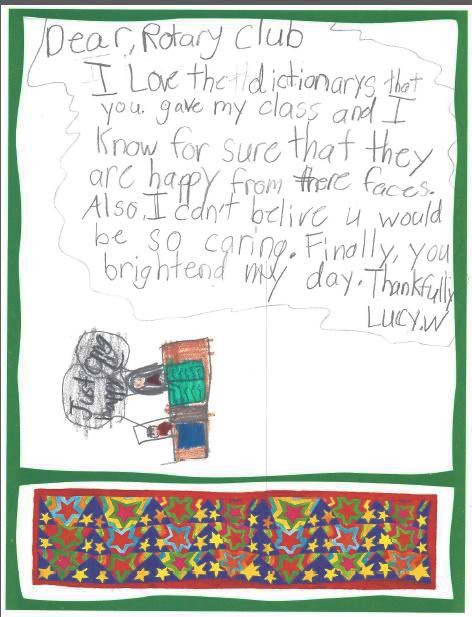 Dear, Rotary Club
I Love the dictionarys that
you gave my class and I
Know for sure that they
are happy from there faces.
Also, I can't belive u would
be so caring. Finally, you
brightend my day. Thankfully
Lucy.W
Just
happy